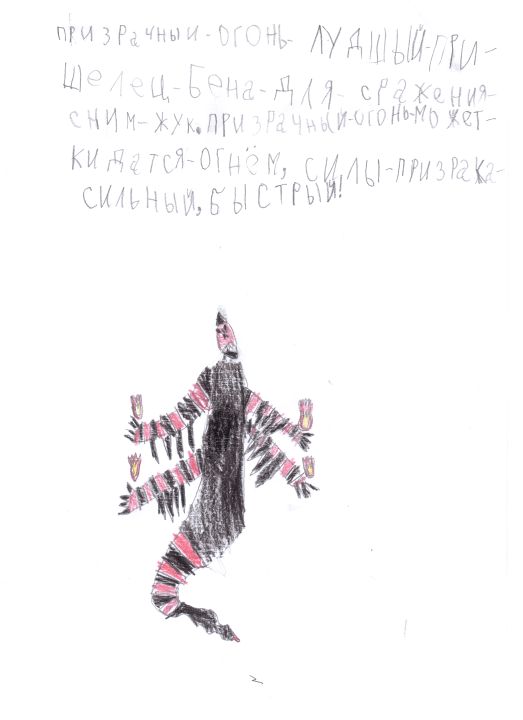 призрачный-огонь- лудшый-при-
шелец-Бена-для- сражения-
сним-жук. призрачный-огонь-может-
кидатся-огнём, силы-призрака-
сильный, быстрый!
2